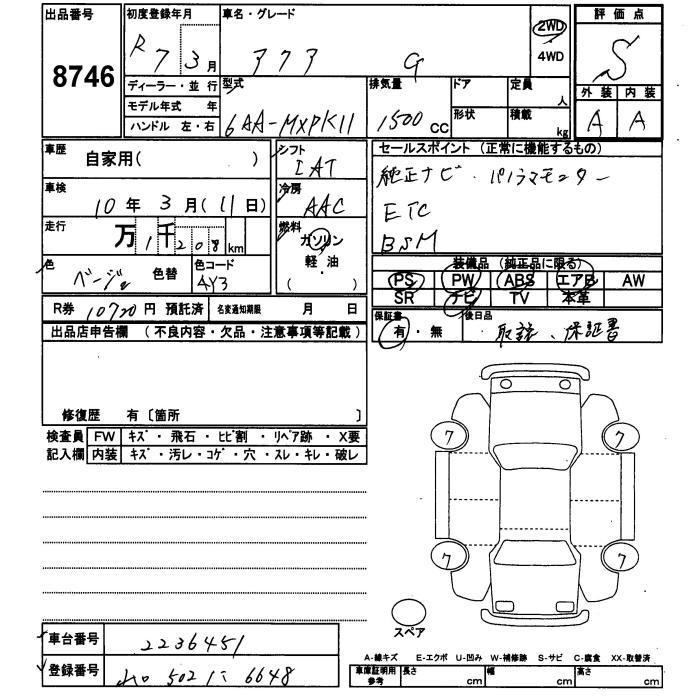 出品番号 8746
初度登録年月 R 7 3 月
車名・グレード アクア G
2WD 4WD
評価点 S
外装 A 内装 A
ディーラー・並行
モデル年式 年
ハンドル 左・右
型式 6AA-MXPK11
排気量 1500 CC
ドア
形状
定員 人
積載 kg
車歴 自家用( )
車検 10年 3月(11日)
走行 万1千208km
色 ベージュ 色替
色コード 4Y3
シフト IAT
冷房 AAC
燃料 ガソリン
軽・油
( )
R券 10720円 預託済 名変通知期限 月 日
セールスポイント (正常に機能するもの)
純正ナビ・パノラマモニター
ETC
BSM
装備品 (純正品に限る)
PS PW ABS エアB AW
SR ナビ TV 本革
保証書 有・無
後日品 取説、保証書
出品店申告欄 (不良内容・欠品・注意事項等記載)
修復歴 有〔箇所
検査員記入欄
FW キズ・飛石・ヒビ割・リペア跡・X要
内装 キズ・汚レ・コゲ・穴・スレ・キレ・破レ
7 7
7 7
スペア
車台番号 2236451
登録番号 502 に 6648
A-線キズ E-エクボ U-凹み W-補修跡 S-サビ C-腐食 XX-取替済
車庫証明用参考 長さ cm 幅 cm 高さ cm